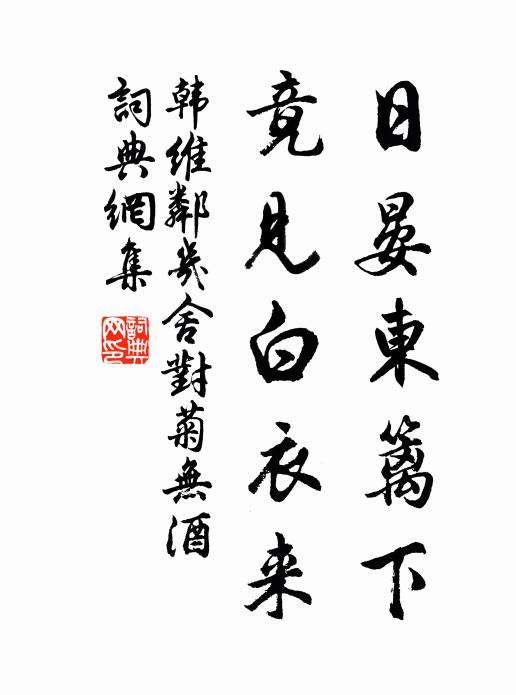 日晏東籬下
竟見白衣来
韩維鄰幾舍對菊無酒
詞典網集
詞典网印